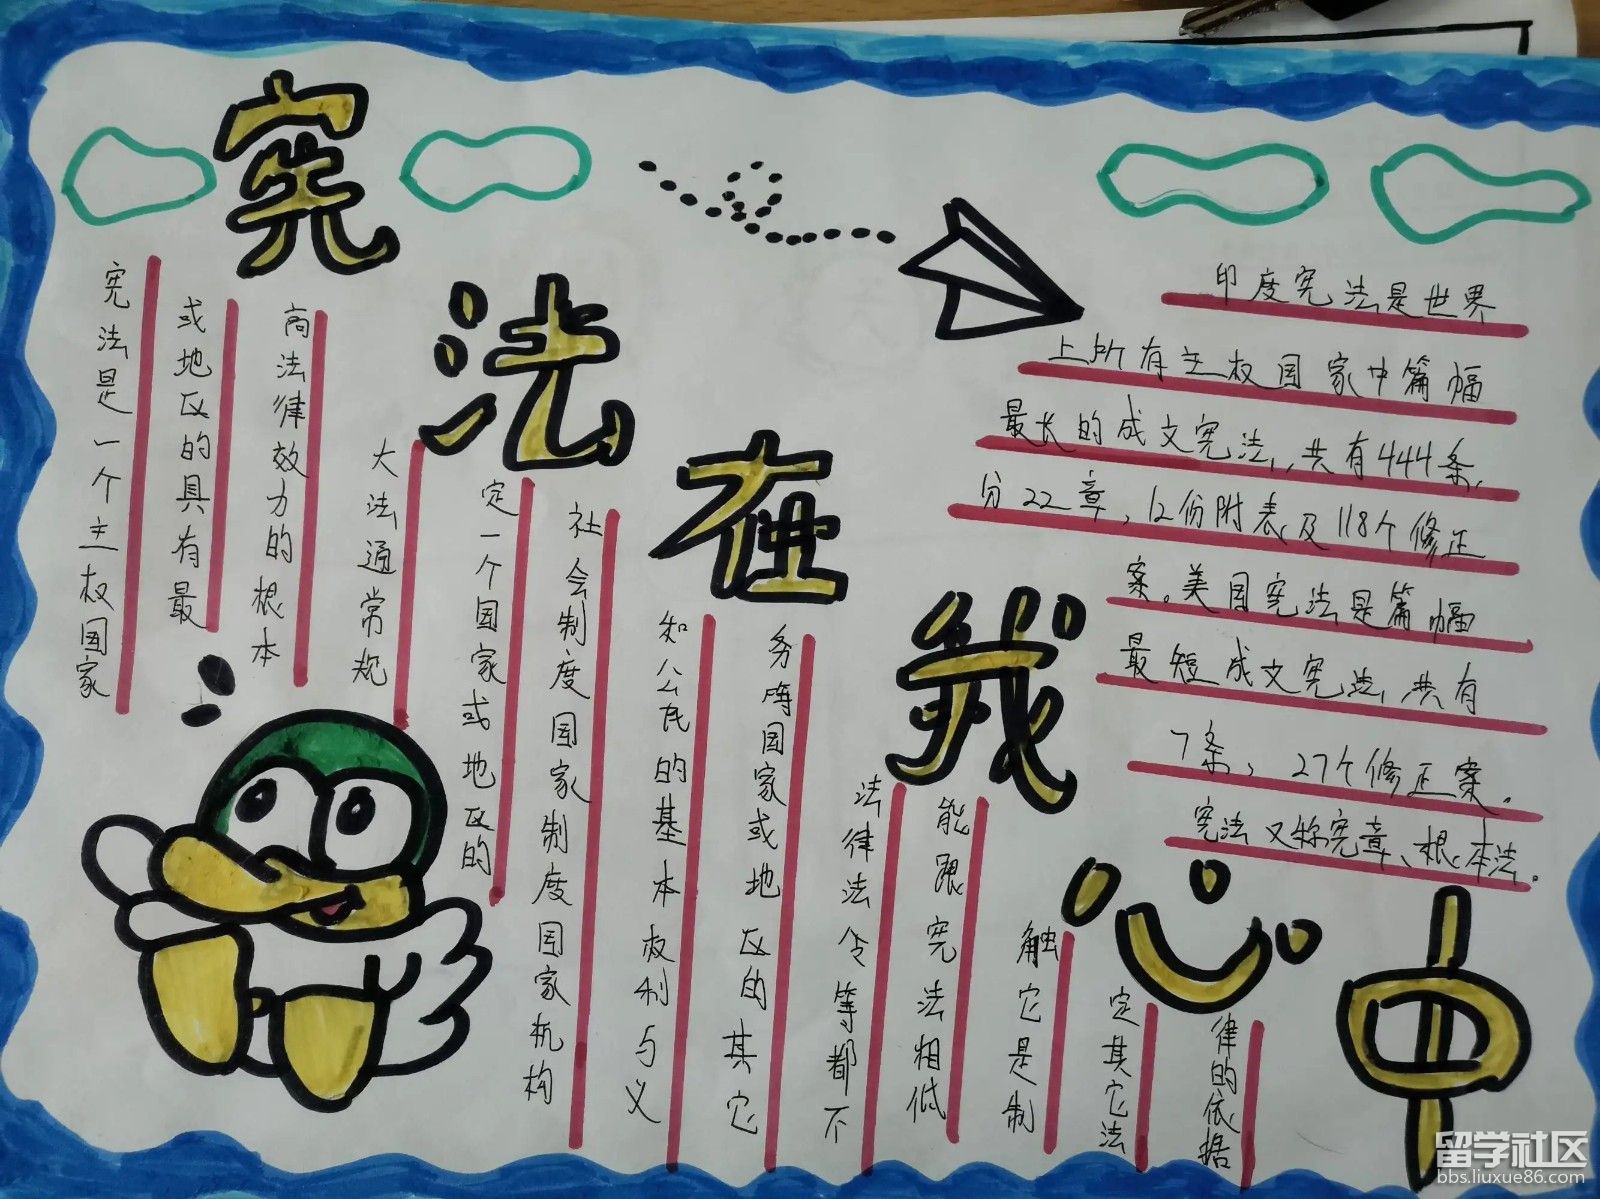 宪法在我心中
宪法是一个主权国家
或地区的具有最
高法律效力的根本
大法通常规
定一个国家或地区的
社会制度国家制度国家机构
和公民的基本权利与义
务每国家或地区的其它
法律法令等都不
能跟宪法相低
触它是制
定其它法
律的依据
印度宪法是世界
上所有主权国家中篇幅
最长的成文宪法,共有444条,
分22章,12份附表及118个修正
案。美国宪法是篇幅
最短成文宪法,共有
7条,27个修正案.
宪法又称宪章、根本法.
留学社区
bbs.liuxue86.com